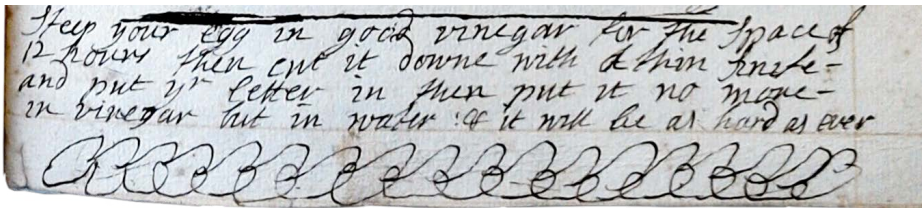 Steep your egg in good vinegar for the space of
12 hours then cut it downe with a thin knife=
and put yr letter in then put it no more=
in vinegar but in water & it will be as hard as ever